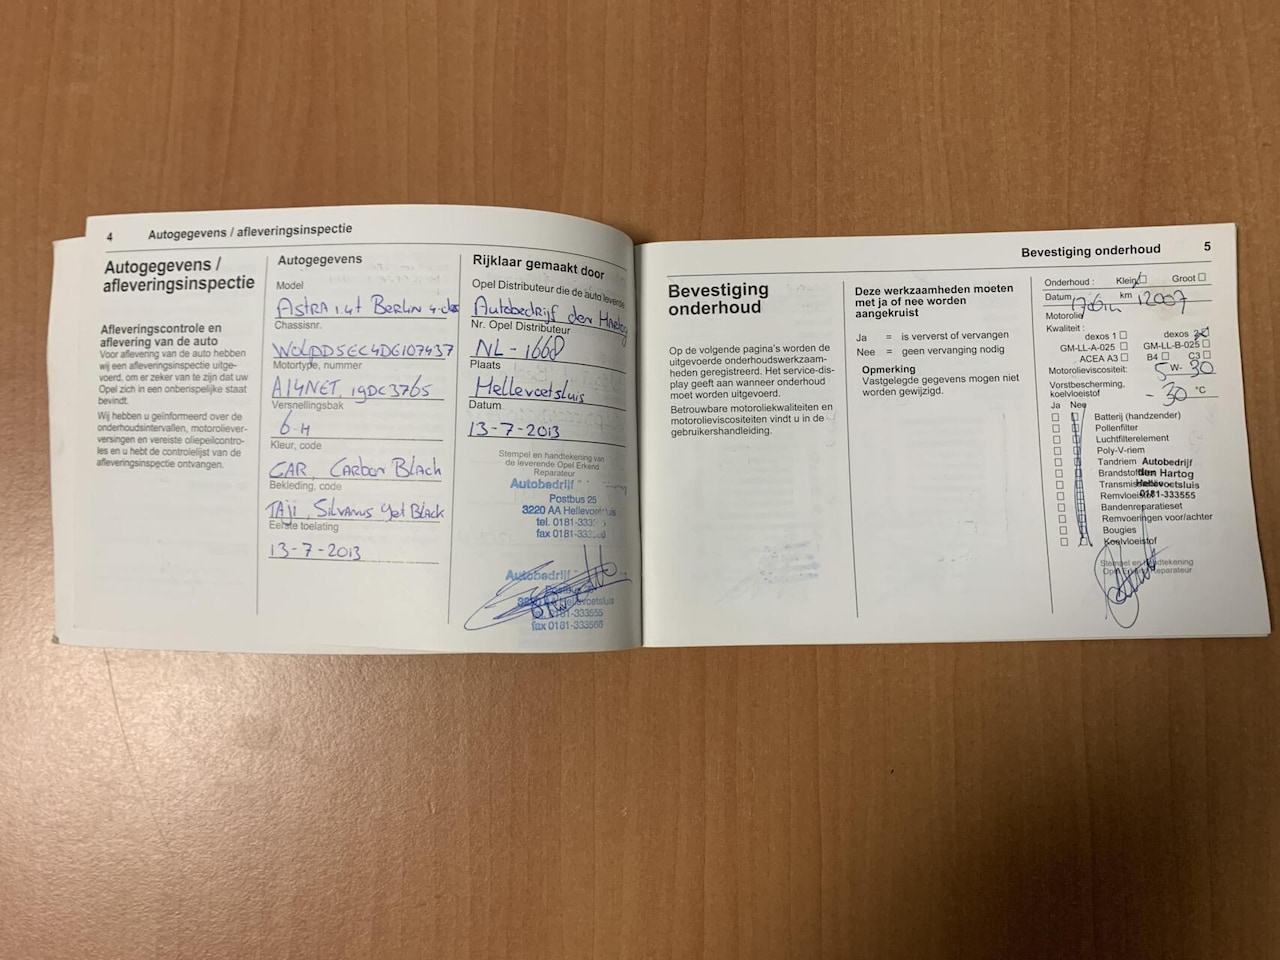 4 Autogegevens / afleveringsinspectie
Autogegevens /
afleveringsinspectie
Afleveringscontrole en
aflevering van de auto
Voor aflevering van de auto hebben
wij een afleveringsinspectie uitge-
voerd, om er zeker van te zijn dat uw
Opel zich in een onberispelijke staat
bevindt.
Wij hebben u geïnformeerd over de
onderhoudsintervallen, motoroliever-
versingen en vereiste oliepeilcontro-
les en u hebt de controlelijst van de
afleveringsinspectie ontvangen.
Autogegevens
Model
ASTRA 1.4t BERLIN 4-drs
Chassisnr.
W0LPD5EC4DG107437
Motortype, nummer
A14NET, 19DC3765
Versnellingsbak
6-H
Kleur, code
GAR, CARBON BLACK
Bekleding, code
TAJI, SILVANUS Jet BLACK
Eerste toelating
13-7-2013
Rijklaar gemaakt door
Opel Distributeur die de auto leverde
Autobedrijf den Hartog
Nr. Opel Distributeur
NL-1668
Plaats
Hellevoetsluis
Datum
13-7-2013
Stempel en handtekening van
de leverende Opel Erkend
Reparateur
Autobedrijf
Postbus 25
3220 AA Hellevoetsluis
tel. 0181-333
fax 0181-333
Autobedrijf
Postbus
3220 AA Hellevoetsluis
0181-333555
fax 0181-333566
Bevestiging onderhoud 5
Bevestiging
onderhoud
Op de volgende pagina's worden de
uitgevoerde onderhoudswerkzaam-
heden geregistreerd. Het service-dis-
play geeft aan wanneer onderhoud
moet worden uitgevoerd.
Betrouwbare motoroliekwaliteiten en
motorolieviscositeiten vindt u in de
gebruikershandleiding.
Deze werkzaamheden moeten
met ja of nee worden
aangekruist
Ja = is ververst of vervangen
Nee = geen vervanging nodig
Opmerking
Vastgelegde gegevens mogen niet
worden gewijzigd.
Onderhoud : Klein Groot
Datum km 12007
Motorolie
Kwaliteit :
dexos 1 dexos
GM-LL-A-025 GM-LL-B-025
ACEA A3 B4 C3
Motorolieviscositeit: 5 W- 30
Vorstbescherming,
koelvloeistof -30 °C
Ja Nee
Batterij (handzender)
Pollenfilter
Luchtfilterelement
Poly-V-riem
Tandriem
Remvloeistof
Bandenreparatieset
Remvoeringen voor/achter
Bougies
Koelvloeistof
Autobedrijf
den Hartog
Hellevoetsluis
0181-333555
Stempel en handtekening
Opel Erkend Reparateur